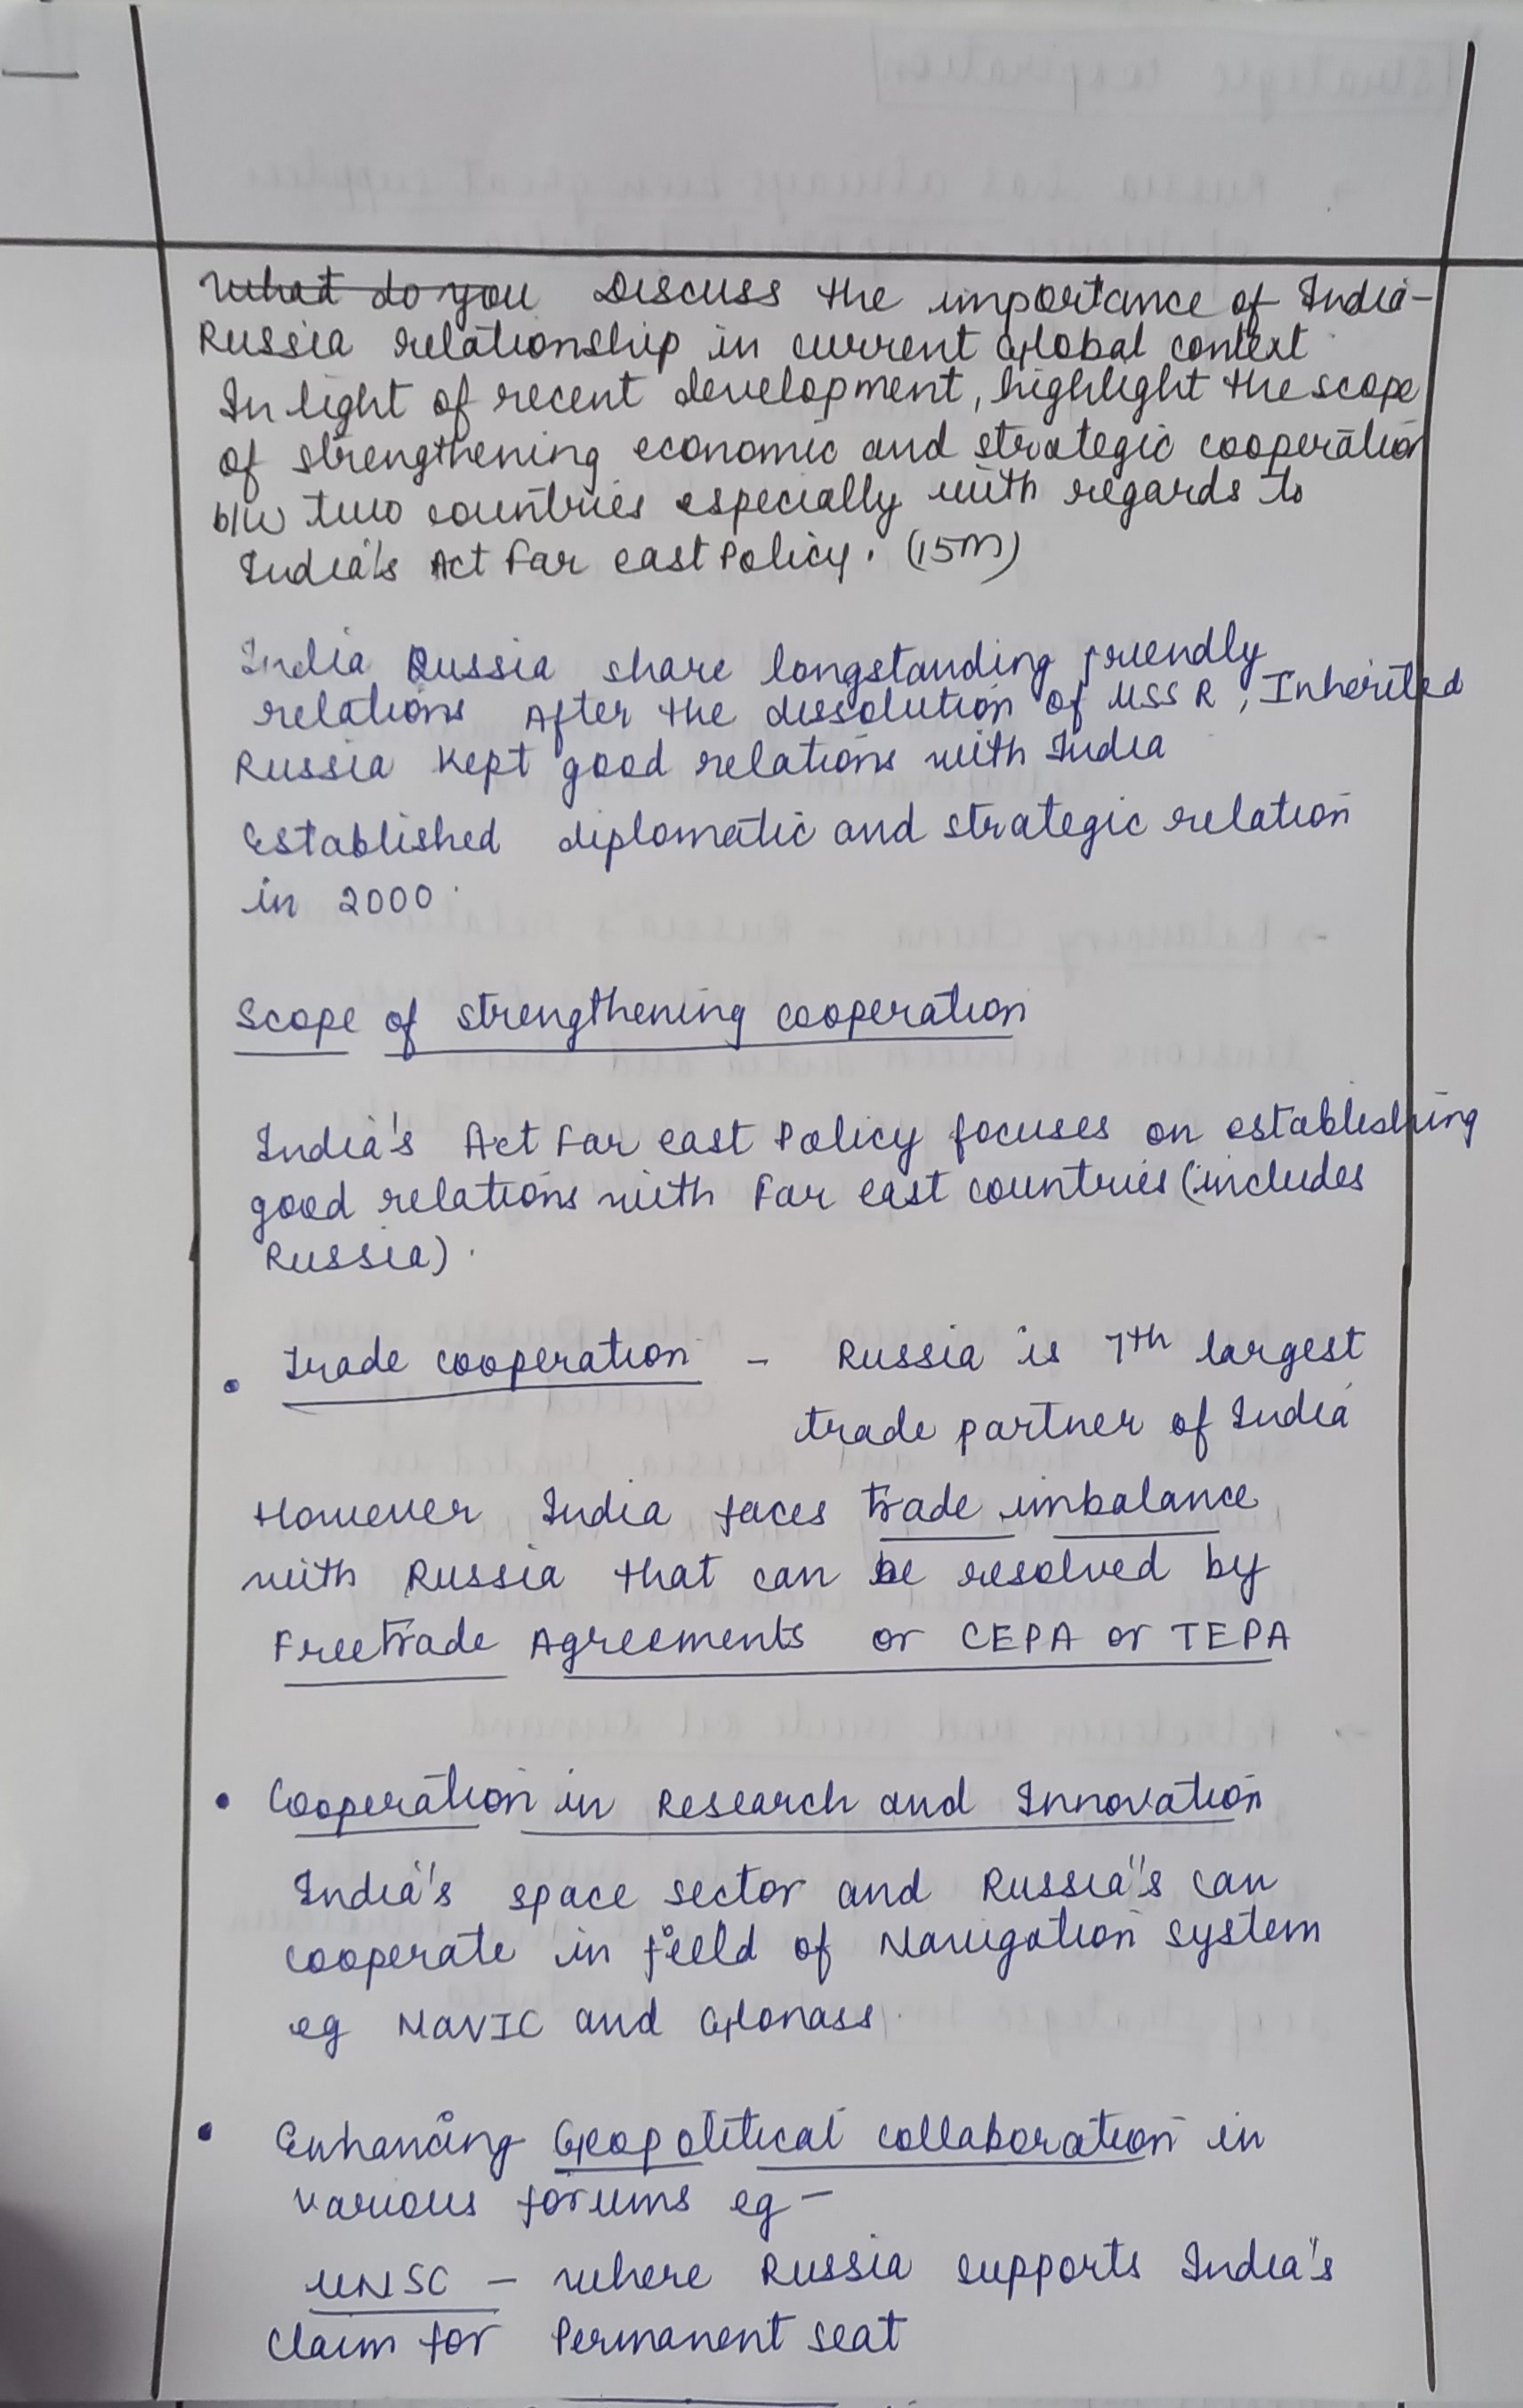 What do you Discuss the importance of India-
Russia relationship in current Global context
In light of recent development, highlight the scope
of strengthening economic and strategic cooperation
b/w two countries especially with regards to
India's Act Far east Policy. (15m)
India Russia share longstanding friendly
relations After the dissolution of USSR, Inherited
Russia kept good relations with India
Established diplomatic and strategic relation
in 2000.
Scope of strengthening cooperation
India's Act Far east Policy focuses on establishing
good relations with Far east countries (includes
Russia).
• Trade cooperation - Russia is 7th largest
trade partner of India
However India faces trade imbalance
with Russia that can be resolved by
Free trade Agreements or CEPA or TEPA
• Cooperation in Research and Innovation
India's space sector and Russia's can
cooperate in feild of Navigation system
eg NavIC and Glonass.
• Enhancing Geopolitical collaboration in
various forums eg -
UNSC - where Russia supports India's
Claim for Permanent seat